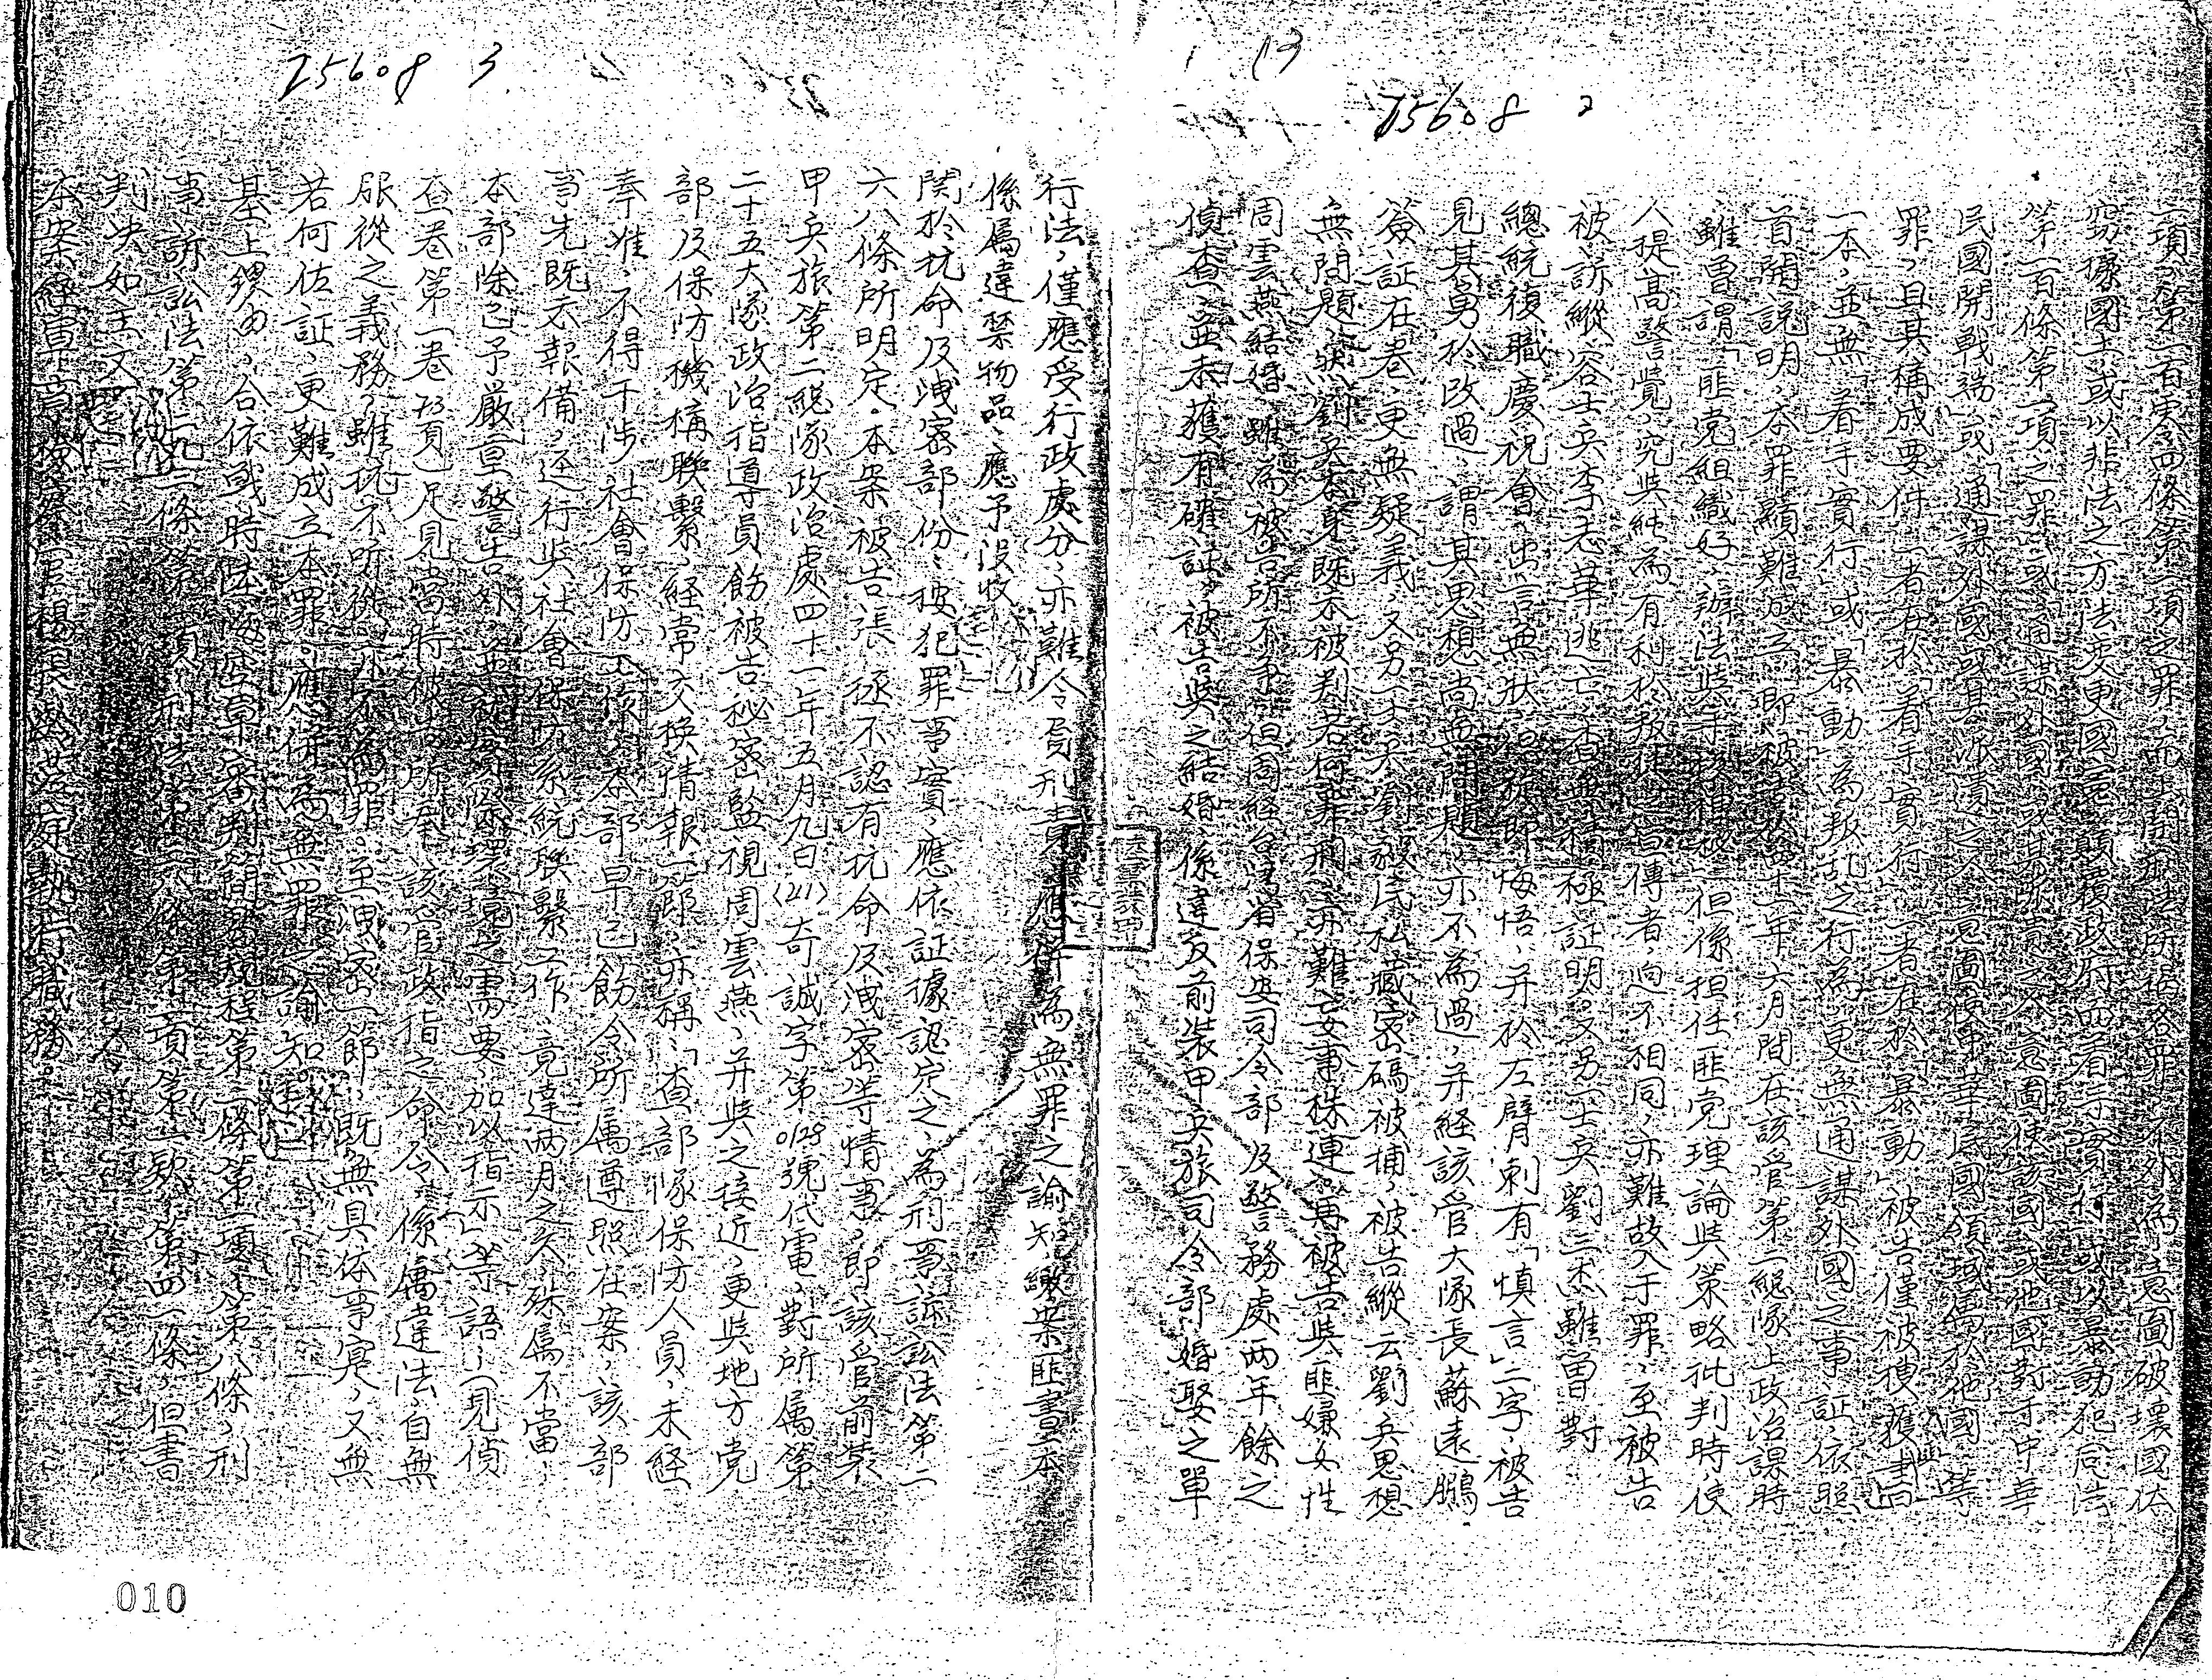 75608 2
13
二項、第一百零四條第一項之罪、而上開刑法所揭各罪、不外為「意圖破壞國体
竊據國土或以非法之方法變更國憲顛覆政府而着手實行」或以暴動犯同法
第一百條第一項之罪」或「通謀外國或其所遣之人意圖使該國或他國對于中華
民國開戰端」或「通謀外國或其派遣之人意圖使中華民國領域屬於他國」等
罪、且其構成要件一者在於「着手實行」一者在於「暴動」被告僅被搜獲
一本、並無「着手實行」或「暴動」為叛乱之行為、更無通謀外國之事証、依照
首開說明、本罪顯難成立、即被告於四十一年六月間在該管第一總隊上政治課時
雖曾謂「匪党組織好、辦法與手段裡極」但係担任匪党理論與策略批判時、使
人提高警覺、究與純為有利於叛徒之宣傳者、逈不相同、亦難故入于罪、至被告
被訴縱容士兵李志華逃亡、查無積極証明、又另一士兵劉三杰雖曾對
總統復職慶祝會、出言無狀、旋即悔悟、并於左臂刺有「慎言」二字、被告
見其勇於改過、謂其思想尚無問題、亦不為過、并経該管大隊長蘇遠鵬
簽証在卷、更無疑義、又另一士兵劉毅民私藏密碼被捕、被告縱云劉兵思想
無問題、然劉兵本身既未被判若何罪刑、亦難妄事株連。再被告與匪嫌女性
周雲燕結婚、雖為被告所不爭、但周経台灣省保安司令部及警務處两年餘之
偵查、並未獲有確証、被告與之結婚、係違反前裝甲兵旅司令部婚娶之單
75608 3
行法、僅應受行政處分、亦難令負刑責、應併為無罪之諭知、繳案匪書一本
係屬違禁物品、應予没收
関於抗命及洩密部份、按犯罪事實、應依証據認定之、為刑事訴訟法第二
六八條所明定。本案被告張拯不認有抗命及洩密等情事、即該管前裝
甲兵旅第二總隊政治處四十一年五月九日(21)奇誠字第0128號代電、對所屬第
二十五大隊政治指導員飭被告秘密監視周雲燕、并與之接近、更與地方党
部及保防機構聯繫、経常交換情報一節、亦稱、「查部隊保防人員、未経
奉准、不得干涉社會保防工作、本部早已飭令所屬遵照在案、該部
事先既不報備、逕行與社會保防系統聯繫工作、竟達两月之久、殊屬不當、
本部除已予嚴重警告外、並視實際環境之需要、加以指示」等語、(見偵
查卷第一卷73頁)足見當時被告所奉該管政指之命令、係屬違法、自無
服從之義務、雖抗不听從、亦不為罪。至洩密一節、既無具体事寔、又無
若何佐証、更難成立本罪。應併為無罪之諭知。
基上據由、合依戰時陸海空軍審判簡易規程第一條第一項、第八條、刑
事訴訟法第二九一條第一項、刑法第三八條第一項第一款、第四一條、但書
判決如主文
本案経軍事檢察官楊良與蒞庭執行職務。
010